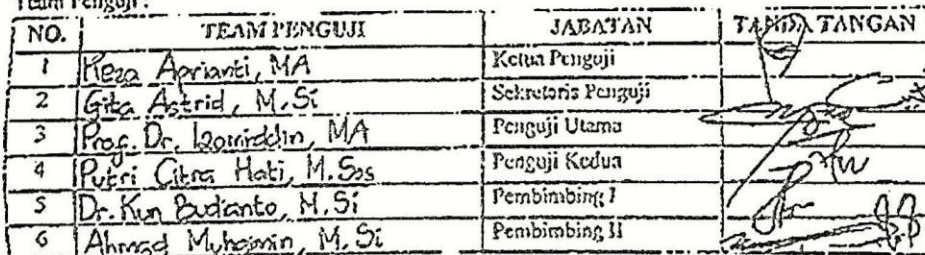 Team Penguji :
NO. TEAM PENGUJI JABATAN TANDA TANGAN
1 Reza Aprianti, MA Ketua Penguji
2 Gita Astrid, M.Si Sekretaris Penguji
3 Prof. Dr. Izomiddin, MA Penguji Utama
4 Putri Citra Hati, M.Sos Penguji Kedua
5 Dr. Kun Budianto, M.Si Pembimbing I
6 Ahmad Muhaimin, M.Si Pembimbing II